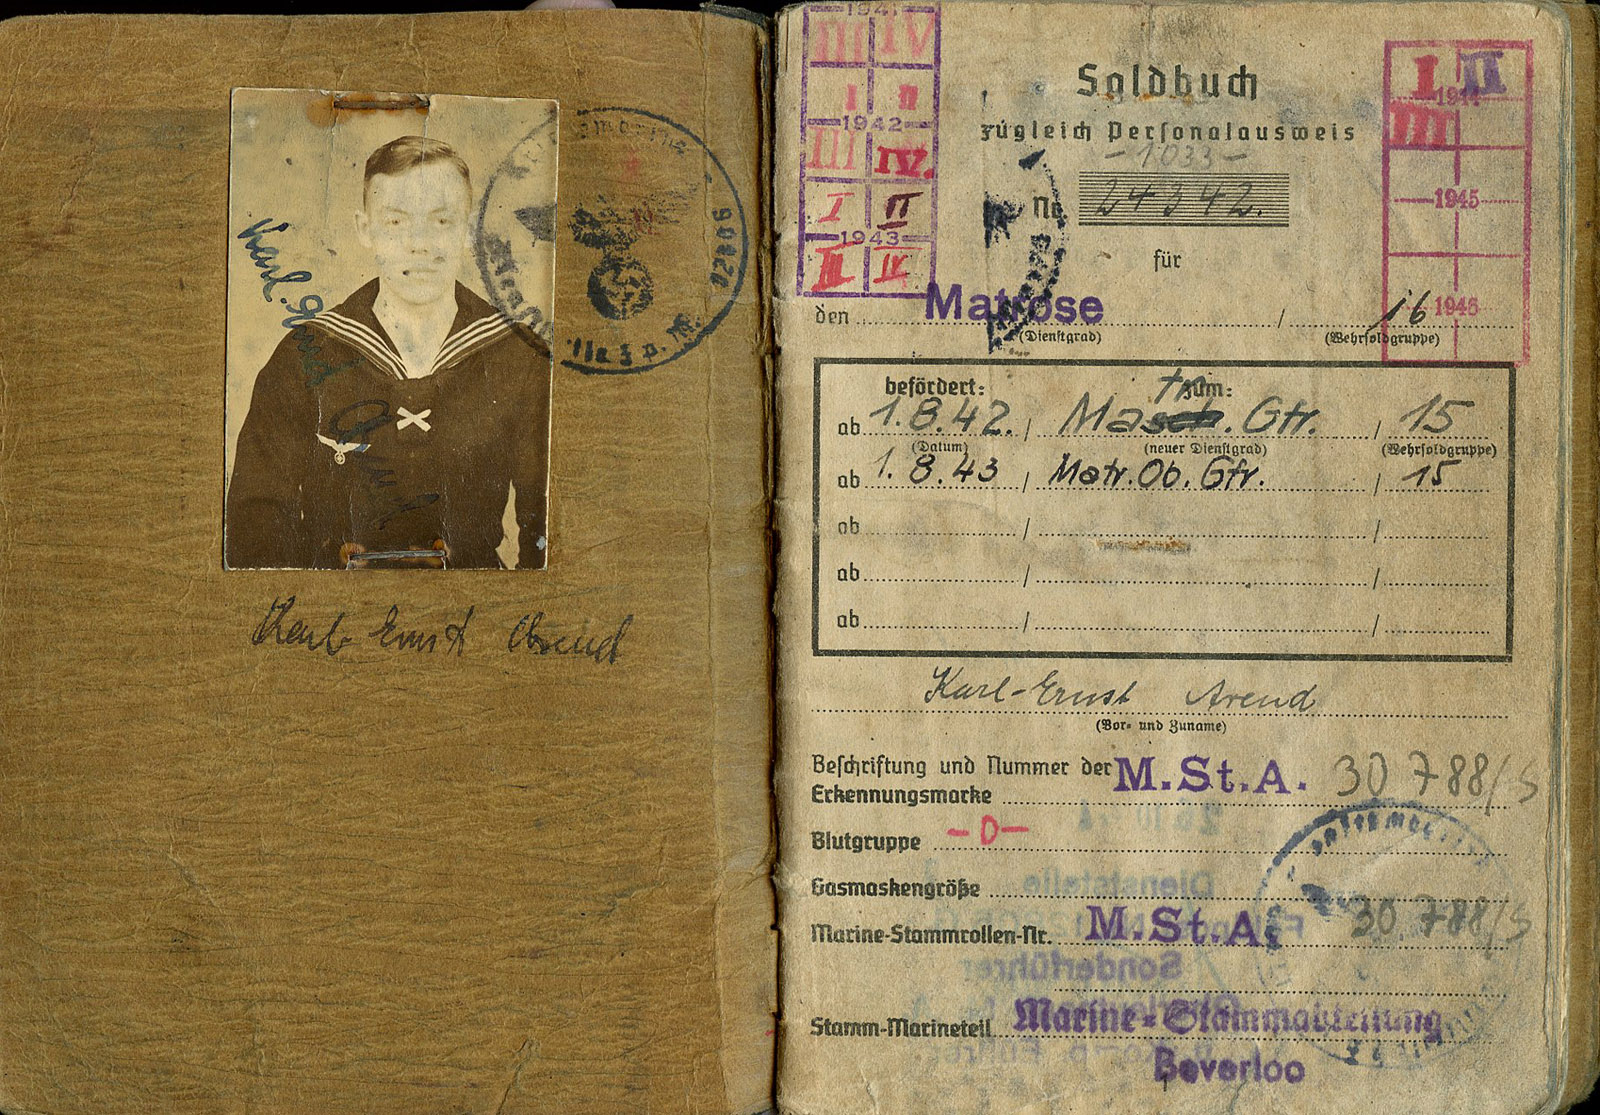 Karl-Ernst Arend
Karl Ernst Arend
Soldbuch
zugleich Personalausweis
- 1033 -
Nr. 24342.
für
den Matrose / 16
(Dienstgrad) (Wehrsoldgruppe)
befördert: zum:
ab 1.8.42. / Matr. Gfr. / 15
(Datum) (neuer Dienstgrad) (Wehrsoldgruppe)
ab 1.8.43 / Matr. Ob. Gfr. / 15
ab / /
ab / /
ab / /
Karl-Ernst Arend
(Vor- und Zuname)
Beschriftung und Nummer der M.St.A. 30 788/S
Erkennungsmarke
Blutgruppe -0-
Gasmaskengröße
Marine-Stammrollen-Nr. M.St.A. 30 788/S
Stamm-Marineteil Marine-Stammabteilung
Beverloo
1941
III IV
I II
1942
III IV.
I II
1943
III IV
I II
1944
III
1945
1946